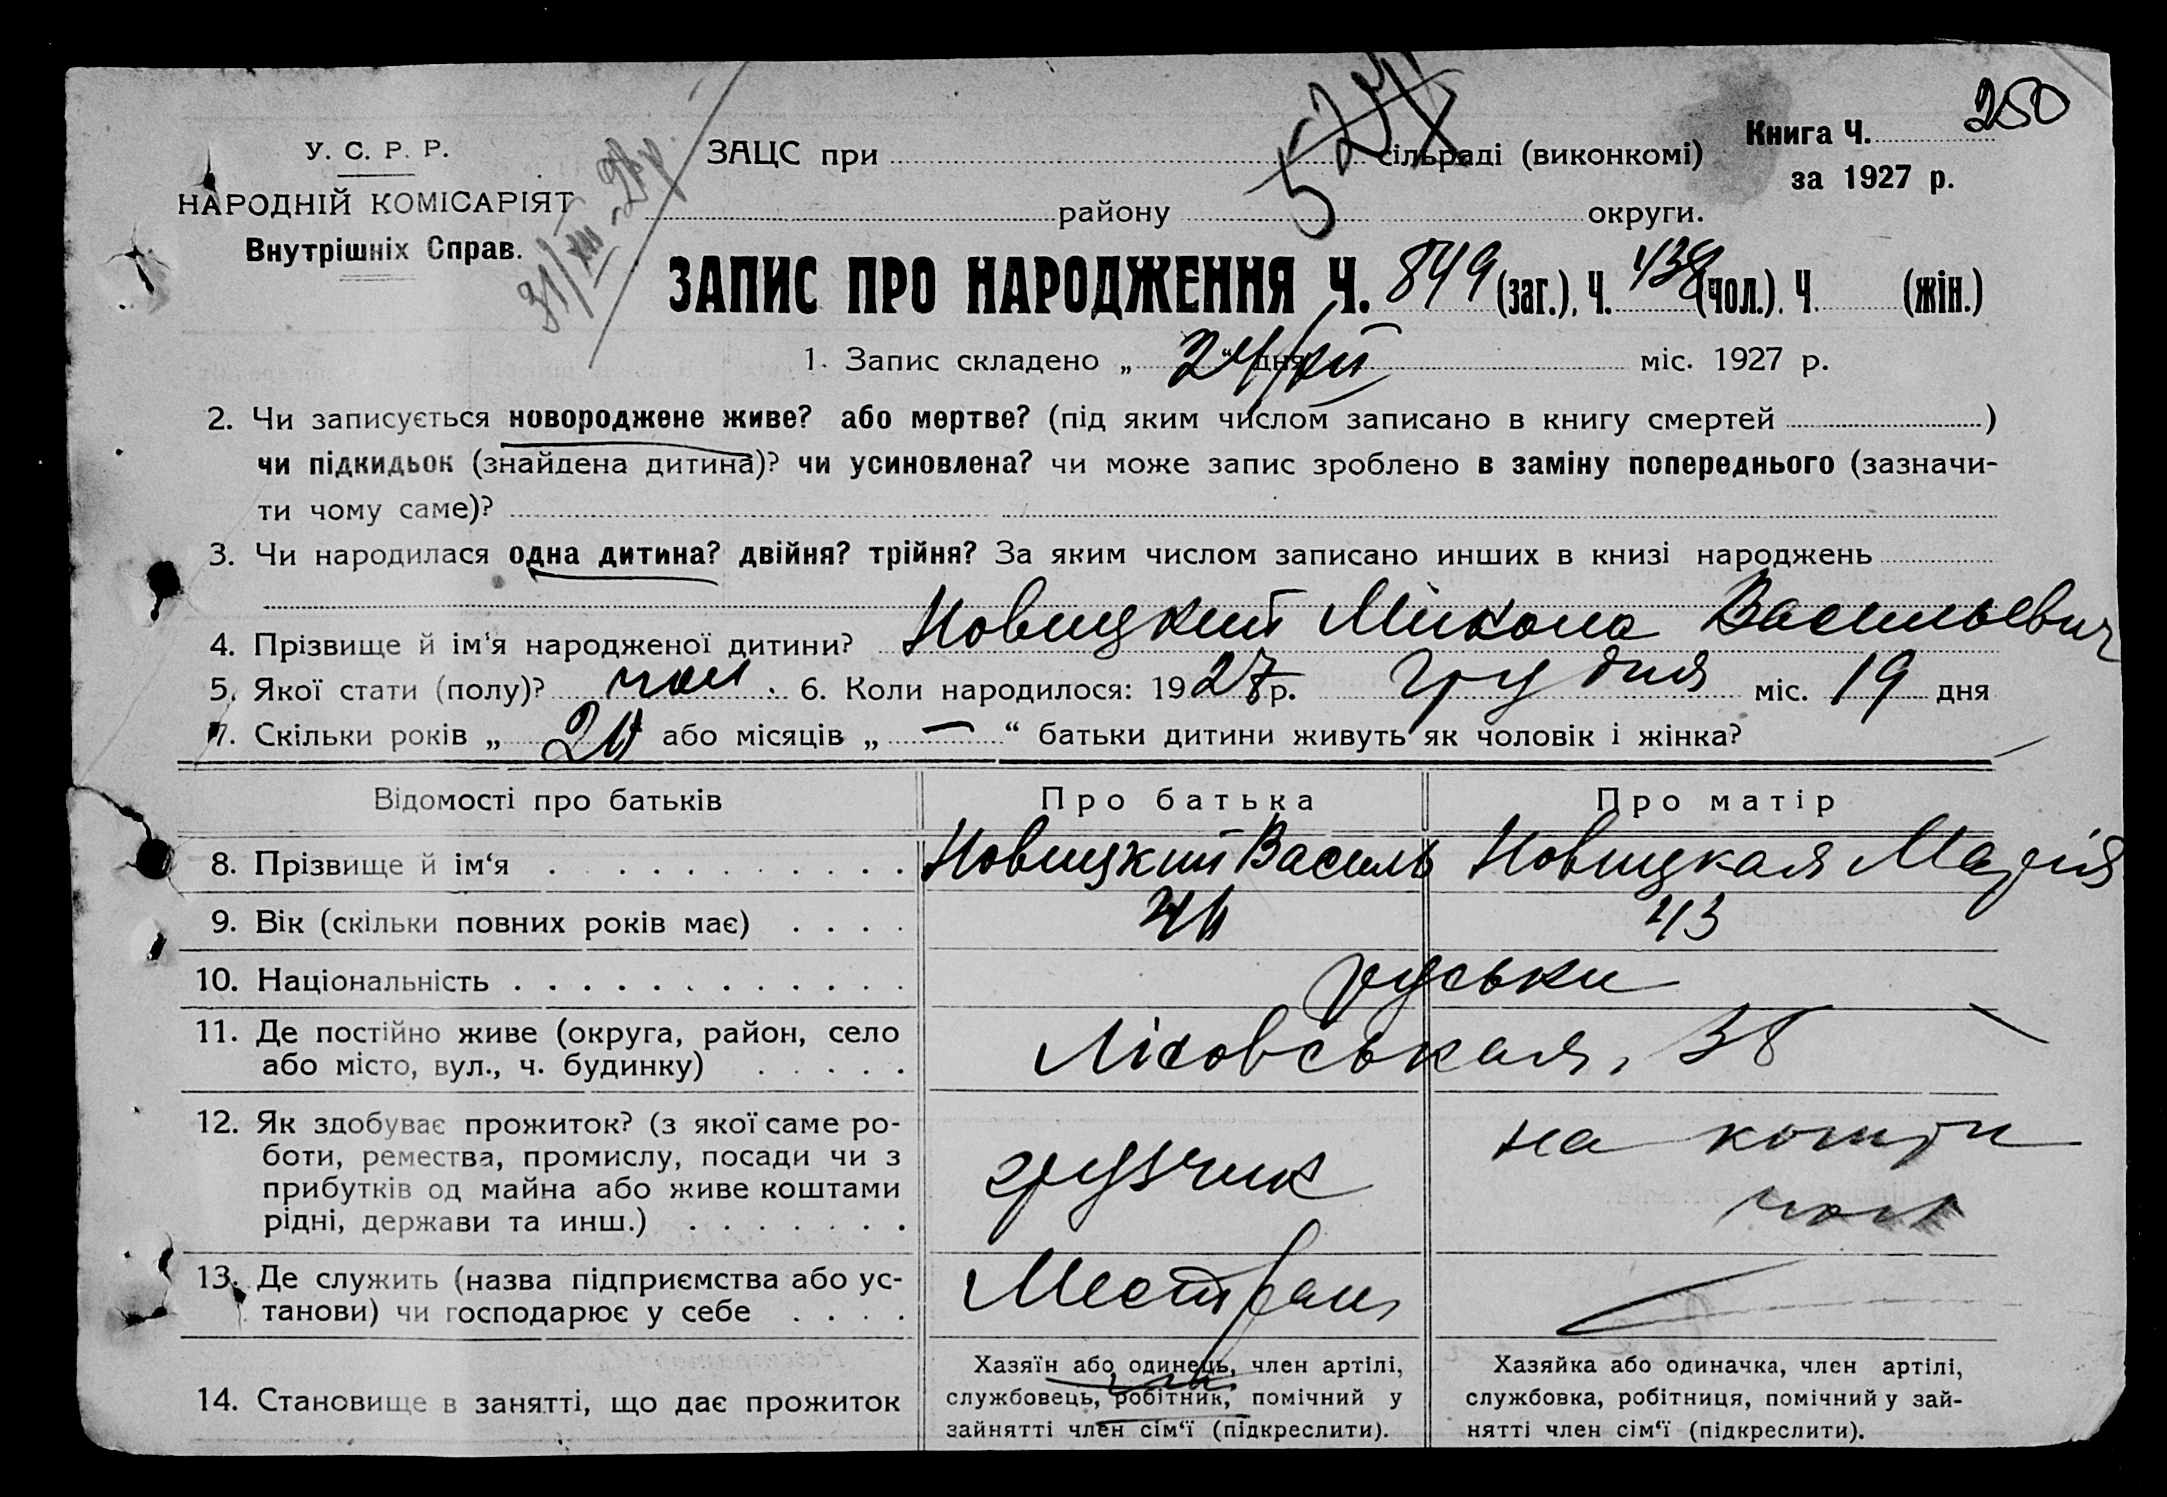 250
524
У. С. Р. Р.
НАРОДНІЙ КОМІСАРІЯТ
Внутрішніх Справ.
31/XII-27р.
ЗАЦС при сільраді (виконкомі)
району округи.
Книга Ч.
за 1927 р.
ЗАПИС ПРО НАРОДЖЕННЯ Ч. 849 (заг.), Ч. 438 (чол.). Ч. (жін.)
1. Запис складено „ 24/XII “ дня міс. 1927 р.
2. Чи записується новороджене живе? або мертве? (під яким числом записано в книгу смертей )
чи підкидьок (знайдена дитина)? чи усиновлена? чи може запис зроблено в заміну попереднього (зазначи-
ти чому саме)?
3. Чи народилася одна дитина? двійня? трійня? За яким числом записано инших в книзі народжень
4. Прізвище й ім‘я народженої дитини? Новицкий Микола Васильевич
5. Якої стати (полу)? чол. 6. Коли народилося: 1927р. грудня міс. 19 дня
7. Скільки років „ або місяців „ — “ батьки дитини живуть як чоловік і жінка?
Відомості про батьків Про батька Про матір
8. Прізвище й ім‘я Новицкий Василь Новицкая Марія
9. Вік (скільки повних років має) 43
10. Національність руськи
11. Де постійно живе (округа, район, село
або місто, вул., ч. будинку) Лісовськая, 38
12. Як здобуває прожиток? (з якої саме ро-
боти, ремества, промислу, посади чи з
прибутків од майна або живе коштами
рідні, держави та инш.) грузчик на кошти чол
13. Де служить (назва підприємства або ус-
танови) чи господарює у себе Местран
14. Становище в занятті, що дає прожиток
Хазяїн або одинець, член артілі,
службовець, робітник, помічний у
зайнятті член сім‘ї (підкреслити).
Хазяйка або одиначка, член артілі,
службовка, робітниця, помічний у зай-
нятті член сім‘ї (підкреслити).